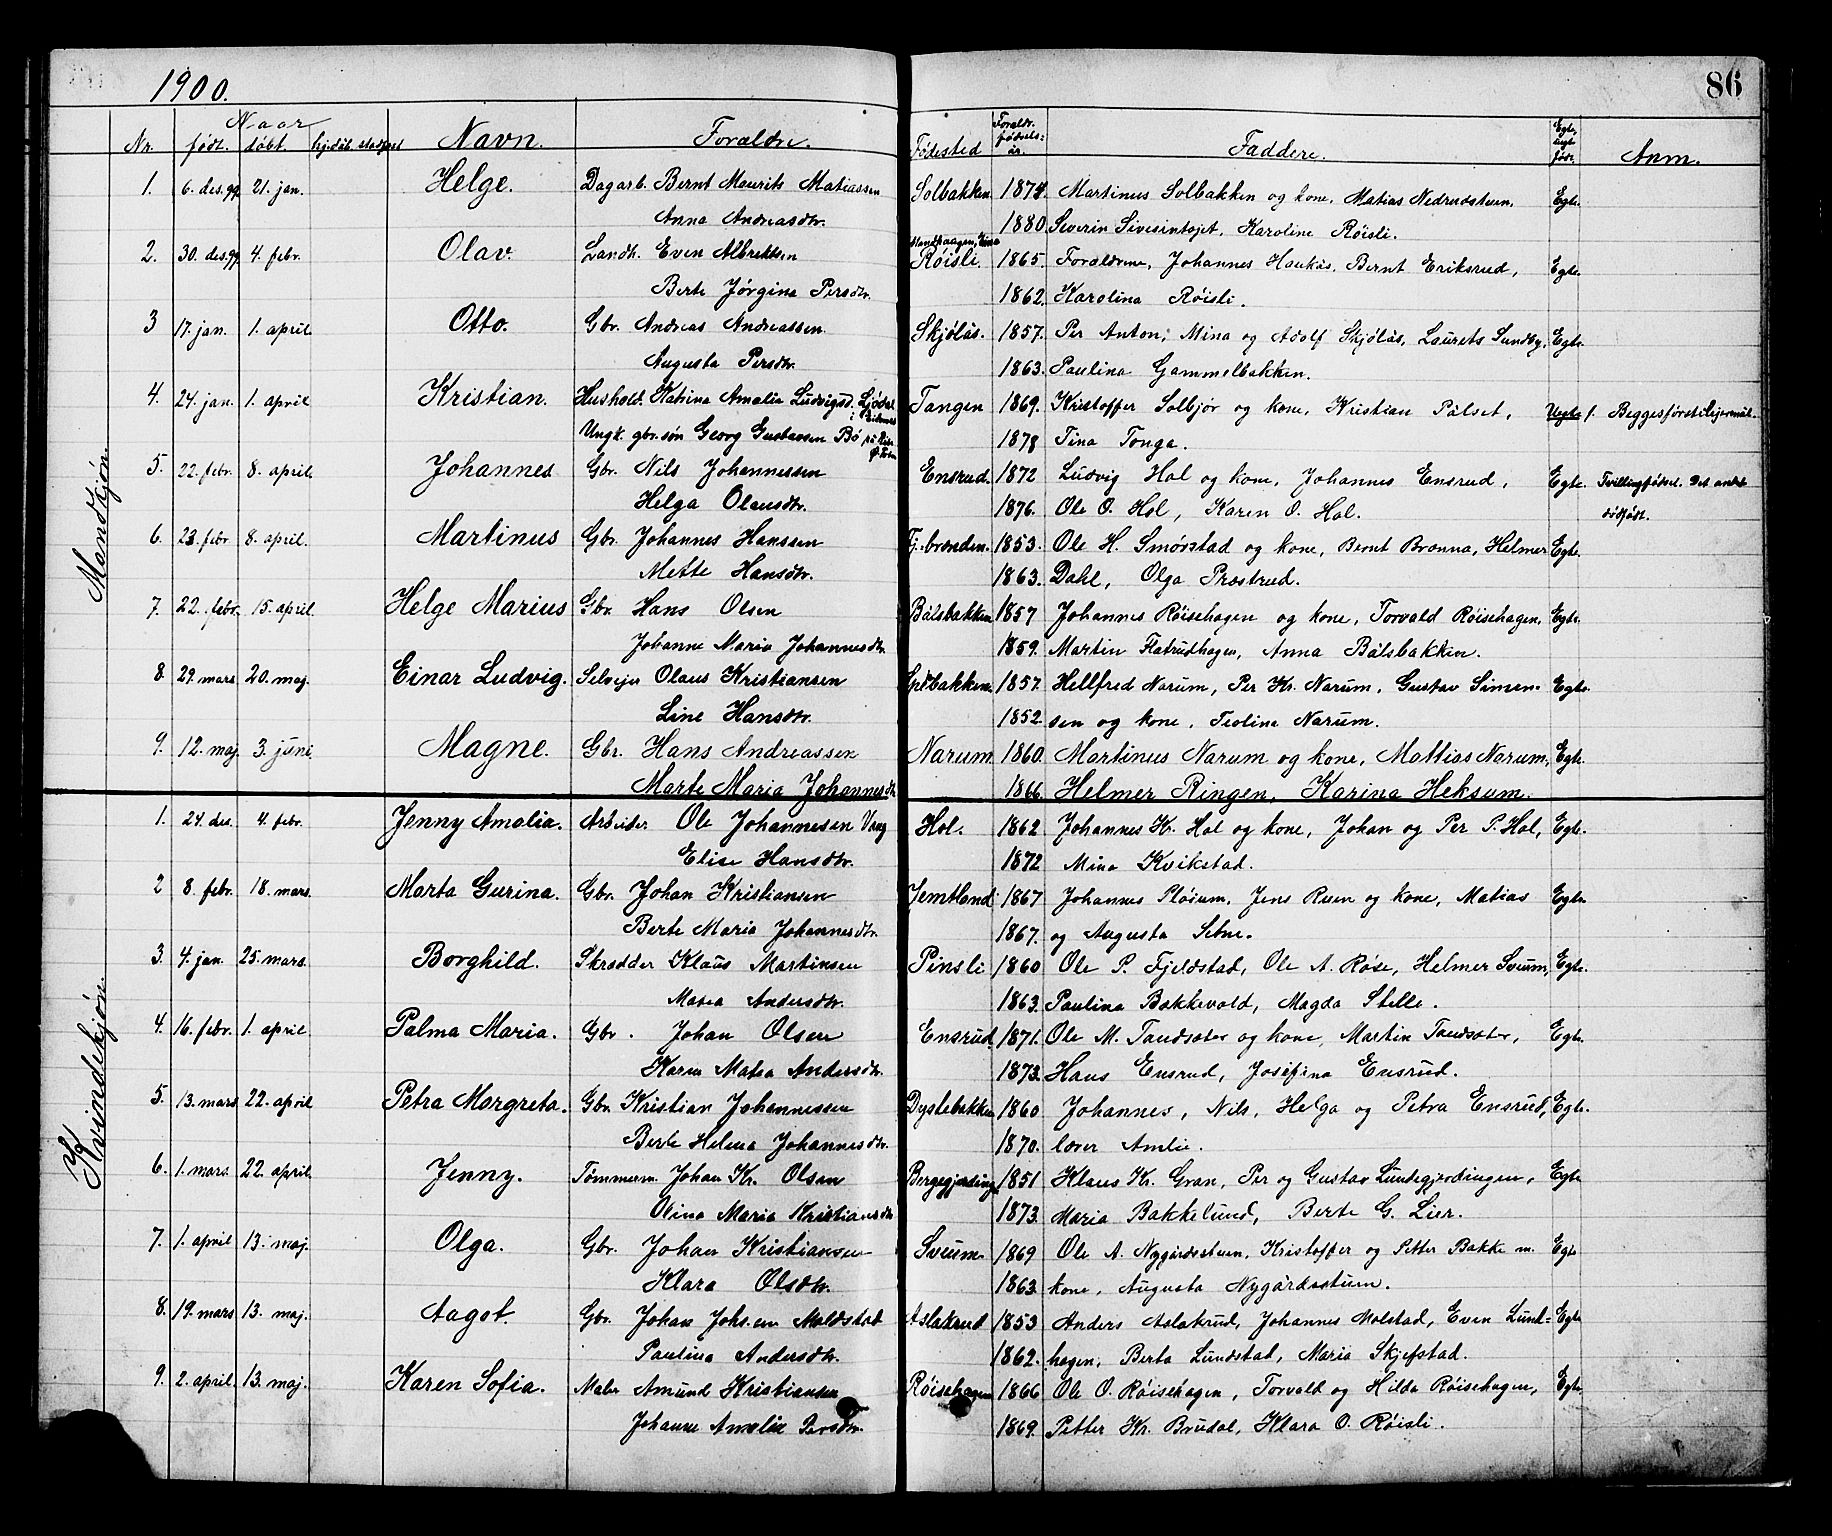 1900.
86
Naar
Nr. født. døbt. hj.døb. stadfæst Navn. Forældre. Fødested Forældr. fødselsår. Faddere. Egte, uegte født. Anm.
Mandkjøn.
1. 6. des. 99 21. jan. Helge. Dagarb. Bernt Maurits Matiassen Solbakken 1874. Martinus Solbakken og kone, Matias Nedrudstuen, Egte.
Anna Andreasdtr. 1880. Severin Sivesintøjet, Karoline Røisli.
2. 30. des. 99 4. febr. Olav Landh. Even Albrektsen Røisli. 1865. Forældrene, Johannes Haukås, Bernt Eriksrud, Egte.
Berte Jørgine Persdtr. 1862. Karolina Røisli.
3 17. jan. 1. april Otto. Gbr. Andreas Andreassen Skjølås. 1857. Per Anton, Mina og Adolf Skjølås, Laurets Sundby, Egte.
Augusta Persdtr. 1863. Paulina Gammelbakken.
4. 24. jan. 1. april Kristian. Hushold. Katrina Amalia Ludvigsd. Tangen 1869. Kristoffer Solbjør og kone, Kristian Pålset, Uegte f. Begges første lejermål.
Ungk. gbr.søn Georg Gustavsen Bø 1878 Tina Tonga.
5. 22. febr. 8. april. Johannes Gbr. Nils Johannessen Ensrud. 1872 Ludvig Hol og kone, Johannes Ensrud, Egte. Tvillingfødsel. Det andet
Helga Olausdtr. 1876. Ole O. Hol, Karen O. Hol. dødfødt.
6. 23. febr 8. april. Martinus Gbr. Johannes Hanssen Tj.brenden. 1853. Ole H. Smørstad og kone, Bernt Brønna, Helmer Egte.
Mette Hansdtr. 1863. Dahl, Olga Prøstrud.
7. 22. febr. 15. april Helge Marius Gbr. Hans Olsen Bålsbakken 1857 Johannes Røisehagen og kone, Torvald Røisehagen, Egte.
Johanne Maria Johannesdtr. 1859. Martin Flatrudhagen, Anna Bålsbakken.
8. 29. mars 20. maj. Einar Ludvig. Selvejer Olaus Kristiansen 1857. Hellfred Narum, Per Kr. Narum, Gustav Simen- Egte.
Line Hansdtr. 1852. sen og kone, Teoline Narum.
9. 12. maj 3. juni. Magne. Gbr. Hans Andreassen Narum 1860. Martinus Narum og kone, Mattias Narum, Egte.
Marte Maria Johannesdtr. 1866. Helmer Ringen, Karina Heksum.
Kvindekjøn.
1. 24. des. 4. febr. Jenny Amalia. Arbeider Ole Johannesen Vang Hol. 1862 Johannes Kr. Hol og kone, Johan og Per P. Hol, Egte.
Elise Hansdtr. 1872 Mina Kvikstad.
2 8. febr. 18. mars. Marta Gurina. Gbr. Johan Kristiansen Jemtland 1867 Johannes Plørum, Jens Ruen og kone, Matias Egte.
Berte Maria Johannesdtr. 1867. og Augusta Sebne.
3. 4. jan. 25. mars. Borghild. Skredder Klaus Martinsen Pinsli 1860 Ole P. Fjeldstad, Ole A. Røse, Helmer Sveum, Egte.
Matea Andersdtr. 1863. Paulina Bakkevold, Magda Stelle.
4. 16. febr. 1. april Palma Maria. Gbr. Johan Olsen Ensrud. 1871. Ole M. Taudsæter og kone, Martin Taudsæter, Egte.
Karen Matea Andersdtr. 1873. Hans Ensrud, Josefina Ensrud.
5. 13. mars 22. april Petra Margreta. Gbr. Kristian Johannessen Dyslebakken 1860 Johannes, Nils, Helga og Petra Ensrud, Egte.
Berte Helena Johannesdtr. 1870. lærer Amlie.
6. 1. mars. 22. april. Jenny. Tømmerm. Johan Kr. Olsen Bergegjerding. 1851 Klaus Kr. Gran, Per og Gustav Lundegjerdingen, Egte
Olina Maria Kristiansdtr 1873. Maria Bakkelund, Berte G. Lier.
7. 1. april 13. maj. Olga. Gbr. Johan Kristiansen Sveum 1869 Ole A. Nygårdsstuen, Kristoffer og Petter Bakke m. Egte
Klara Olsdtr. 1863. kone, Augusta Nygårdsstuen.
8. 19. mars 13. maj. Aagot. Gbr. Johan Johs.en Moldstad Aslakrud 1853 Anders Aslakrud, Johannes Molstad, Even Lund= Egte
Paulina Andersdtr. 1862. hagen, Berta Lundstad, Maria Skjefstad.
9. 2. april. 13. maj. Karen Sofia. Maler Amund Kristiansen Røisehagen 1866 Ole O. Røisehagen, Torvald og Hilda Røisehagen, Egte.
Johanne Amalie Persdtr. 1869. Petter Kr. Brudal, Klara O. Røisli.